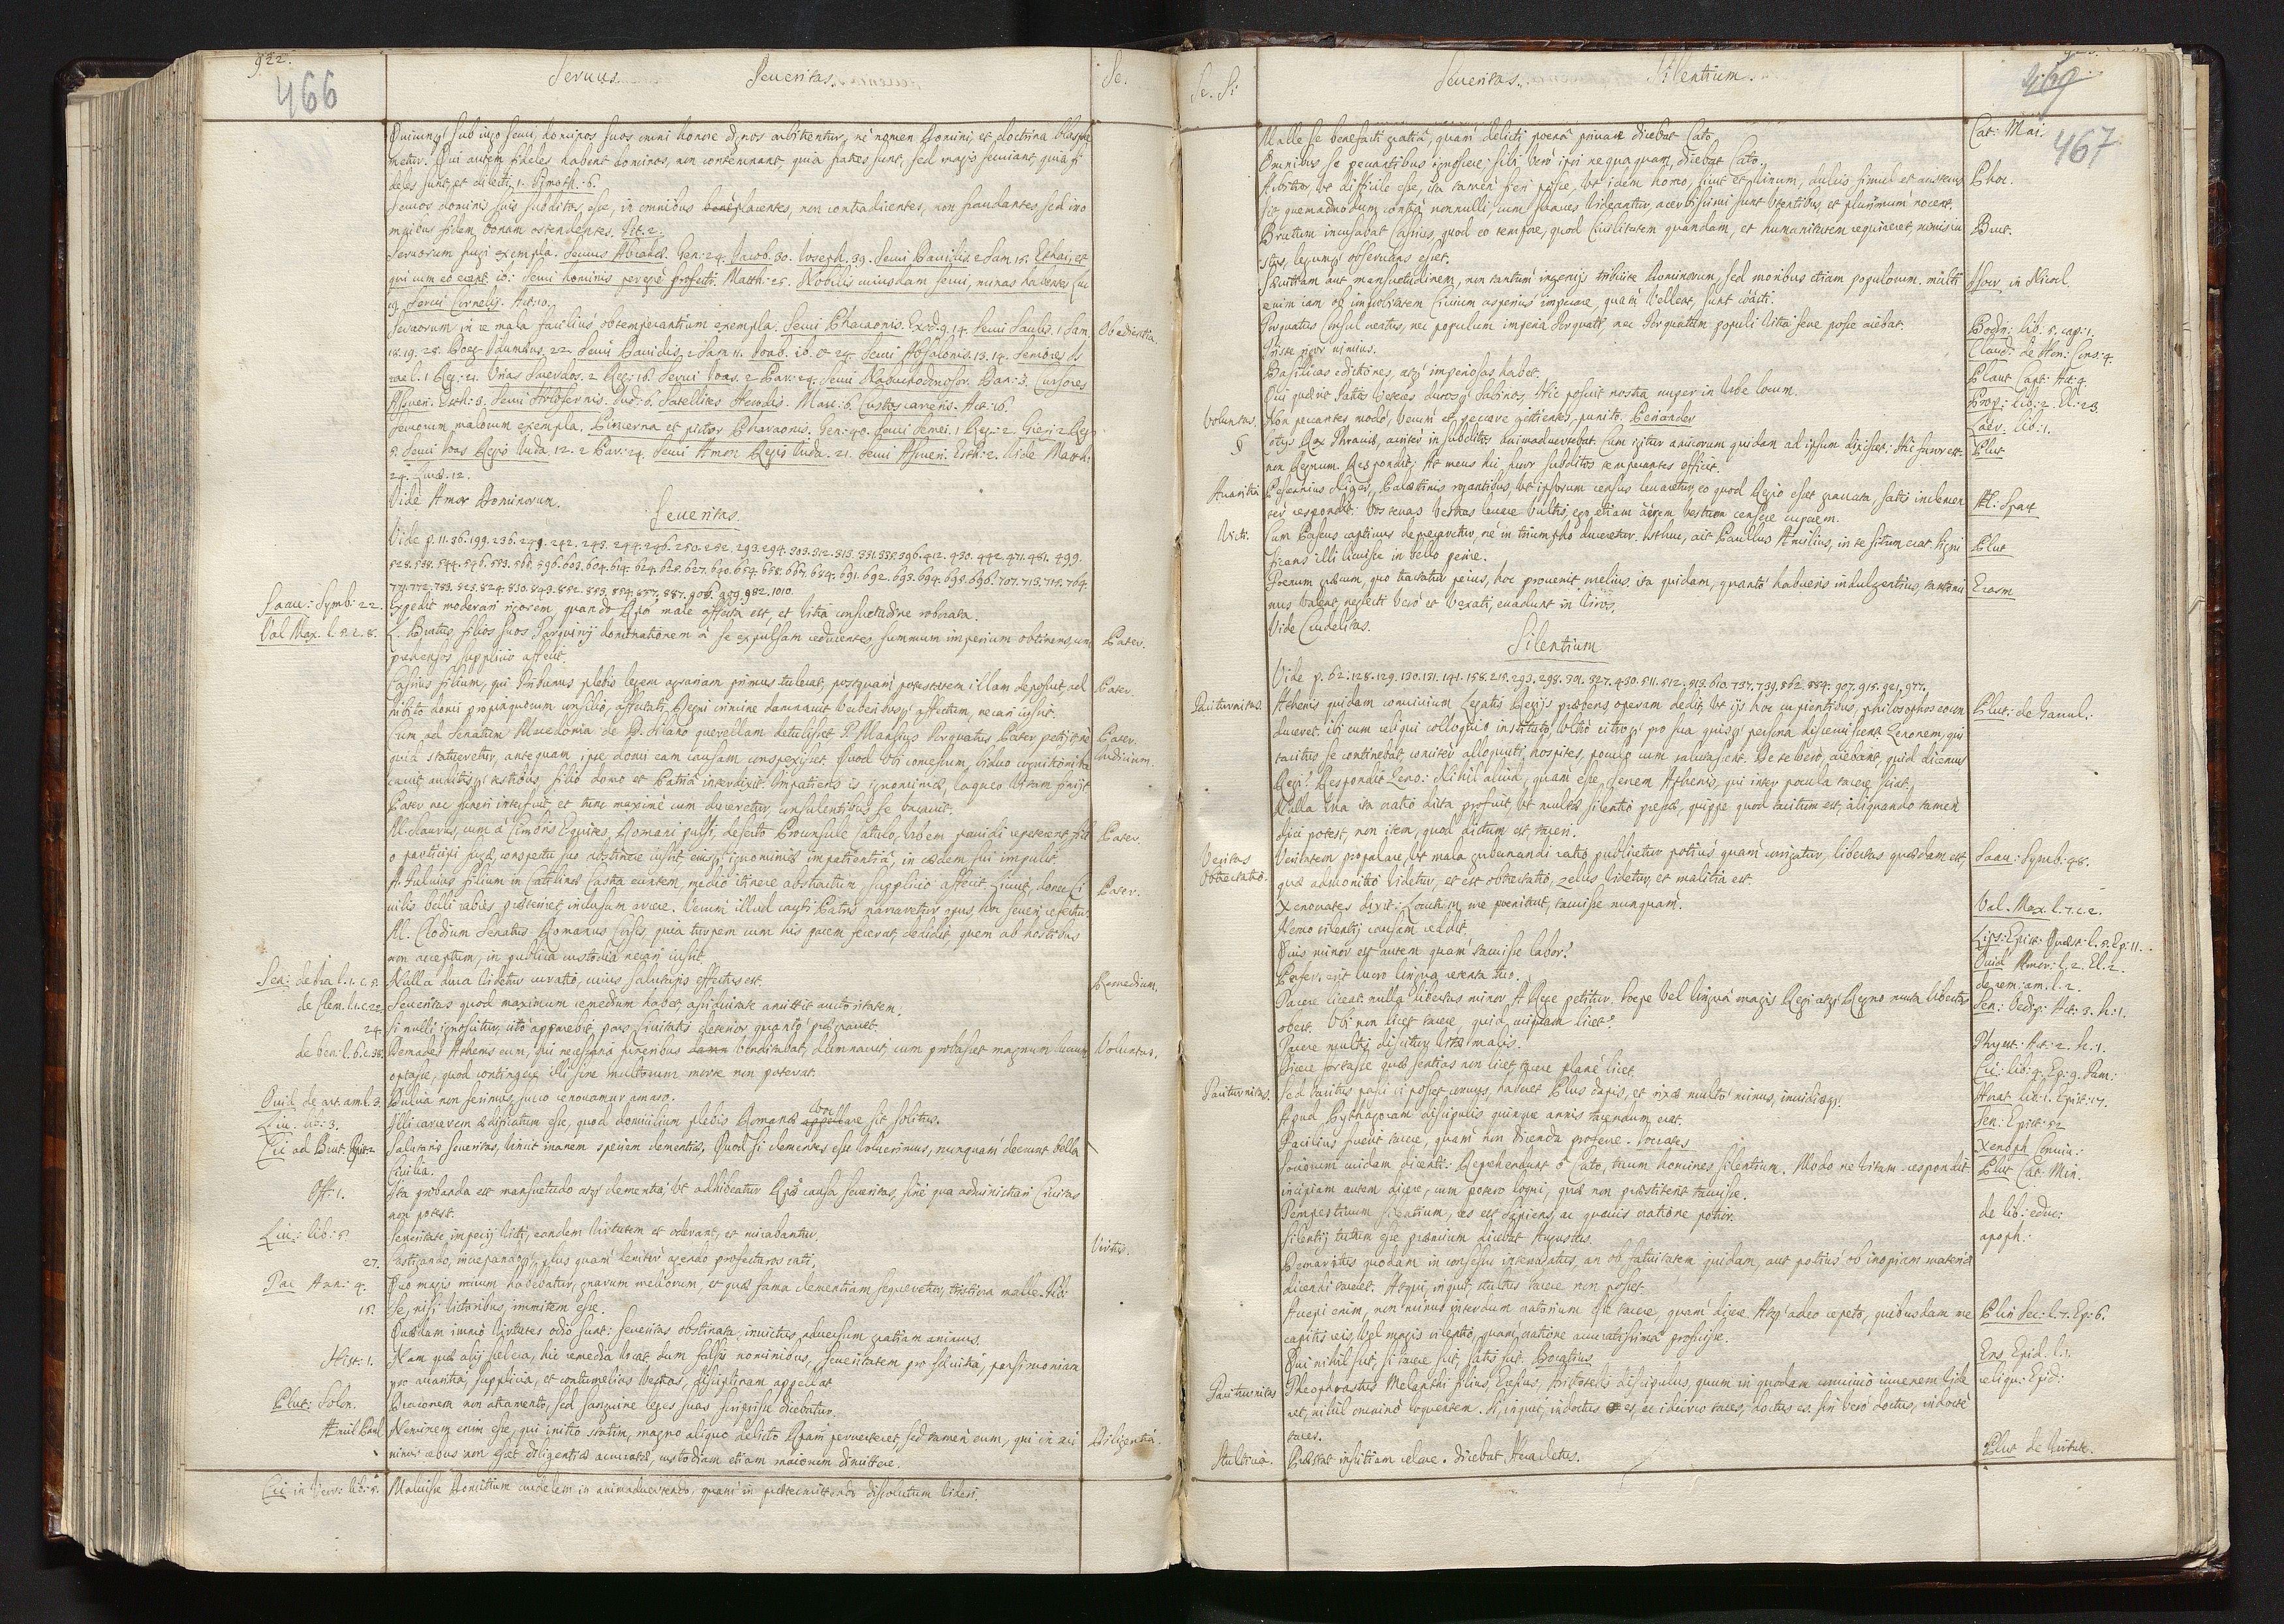 922.
466
Seruus. Seueritas. Se.
Quicunq sub iugo serui, dominos suos omni honore dignos arbitrentur, ne nomen Domini, et doctrina blasphe
metur. Qui autem fideles habent dominos, non contemnant, quia fratres sunt, sed magis seruiant, quia fi
deles sunt, et dilecti. 1. Timoth: 6.
Seruos dominis suis subditos esse, in omnibus bene placentes, non contradicentes, non fraudantes, sed in o
mnibus fidem bonam ostendentes. Tit. 2.
Seruorum frugi exempla. Seruus Abrahae. Gen: 24. Iacob. 30. Ioseph. 39. Serui Dauidis. 2 Sam. 15. Ethai, et
qui cum eo erant. ib: Serui hominis peregre profecti. Matth: 25. Nobilis cuiusdam serui, minas habentes Luc
19. Serui Cornelij. Act: 10.
Seruorum in re mala facilius obtemperantium exempla. Serui Pharaonis. Exod. 9. 14. Serui Saulis. 1 Sam
18. 19. 28. Doeg Idumaeus. 22. Serui Dauidis. 2 Sam 11. Ioab. ib. et 24. Serui Absalonis. 13. 14. Seniores Is
rael. 1 Reg: 21. Vrias Sacerdos. 2 Reg: 16. Serui Ioas. 2 Par: 24. Serui Nabuchodnosor. Dan: 3. Cursores
Assueri. Esth: 3. Serui Holofernis. Iud: 6. Satellites Herodis. Marc: 6. Custos carceris. Act: 16.
Obedientia.
Seruorum malorum exempla. Pincerna et pistor Pharaonis. Gen: 40. Serui Semei. 1 Reg: 2. Giezi 2 Reg
5. Serui Ioas Regis Iuda. 12. 2 Par: 24. Serui Amon Regis Iuda. 21. Serui Assueri. Esth: 2. Vide Matth:
24. Luc: 12.
Vide Amor Dominorum.
Seueritas.
Vide p. 11. 36. 199. 236. 249. 242. 243. 244. 246. 250. 252. 293. 294. 303. 312. 313. 331. 335. 396. 412. 430. 442. 471. 481. 499.
528. 538. 544. 546. 553. 568. 596. 603. 604. 614. 624. 625. 627. 640. 654. 658. 667. 684. 691. 692. 693. 694. 695. 696. 707. 713. 715. 764.
771. 772. 783. 823. 824. 830. 849. 852. 853. 854. 857. 887. 908. 959. 982. 1010.
Saau: Symb: 22. Expedit moderari rigorem, quando Resp. male affecta est, et vitia consuetudine roborata.
Val Max. l. 5. c. 8. L. Brutus filios suos Tarquinij dominationem a se expulsam reducentes summum imperium obtinens, com Pater.
prehensos supplicio affecit.
Cassius filium, qui Tribunus plebis legem agrariam primus tulerat, postquam potestatem illam deposuit, ad Pater.
hibito domi propinquorum consilio, affectati Regni crimine damnauit verberibusq affectum, necari iussit.
Cum ad Senatum Macedonia de D. Silano querellam detulisset T. Manlius Torquatus Pater petijt ne Pater.
quid statueretur, antequam ipse domi eam causam inspexisset. Quod ubi concessum, biduo cognitioni va Iudicium.
cauit auditisq testibus filio domo et Patria interdixit. Impatiens is ignominiae, laqueo vitam finijt
Pater nec funeri interfuit, et tunc maxime cum duceretur, consulentibus se vacauit.
M. Scaurus, cum a Cimbris Equites Romani pulsi, deserto Proconsule Catulo, Vrbem pauidi repeterent, fili Pater.
o participi fugae, conspectu suo abstinere iussit, eiusq ignominiae impatientia, in caedem sui impulit.
A. Fuluius filium in Catilinae Castra euntem, medio itinere abstractum, supplicio affecit. Licuit, donec Ci Pater.
uilis belli rabies praeteriret inclusum arcere. Verum illud cauti Patris narraretur opus, hoc seueri refertur.
M. Clodium Senatus Romanus Corsis, quia turpem cum his pacem fecerat, dedidit, quem ab hostibus
non acceptum, in publica custodia necari iussit.
Sen: de Ira l. 1. c. 5. Nulla dura videtur curatio, cuius salutaris effectus est. Remedium.
de Clem. l. 1. c. 22. Seueritas quod maximum remedium habet, assiduitate amittit auctoritatem.
24. Si nulli ignoscitur, cito apparebit, pars Ciuitatis deterior quanto praegrauet.
de ben: l. 6. c. 38. Demades Athenis eum, qui necessaria funeribus venditabat, damnauit, cum probasset magnum lucrum Voluntas.
optasse, quod contingere illi sine multorum morte non poterat.
Ouid. de art. am. l. 3. Dulcia non ferimus, succo renouamur amaro.
Liu: lib: 3. Illi carcerem aedificatum esse, quod domicilium plebis Romanae vocare sit solitus.
Cic ad Brut. Epist. 2 Salutaris seueritas, vincit inanem speciem clementiae. Quod si clementes esse voluerimus, nunquam deerunt bella
Ciuilia.
Off: 1. Ita probanda est mansuetudo atq clementia, vt adhibeatur Rei causa seueritas, sine qua administrari Ciuitas
non potest.
Liu: lib: 5. Seueritate imperij victi, eandem virtutem et oderant, et mirabantur. Virtus.
27. Castigando, increpandoq plus quam leniter agendo profecturos rati.
Tac Ann: 4. Quo magis mirum habebatur, gnarum meliorum, et quae fama clementiam sequeretur, tristiora malle. Tib:
15. se, nisi victoribus, immitem esse.
Quaedam immo virtutes odio sunt: seueritas obstinata, inuictus aduersum gratiam animus.
Hist: 1. Nam quae alij scelera, hic remedia vocat dum falsis nominibus, seueritatem pro saeuitia, parsimoniam
pro auaritia, supplicia, et contumelias vestras, disciplinam appellat.
Plut: Solon. Draconem non atramento, sed sanguine leges suas scripsisse dicebatur.
Amil Paul Neminem enim esse, qui initio statim, magno aliquo delicto Rempub peruerteret, sed tamen eum, qui in mi Diligentia.
nimis rebus non esset diligentiae accuratae, custodiam etiam maiorum dimittere.
Cic in Verr: lib: 5. Maluisse Domitium crudelem in animaduertendo, quam in praetermittendo dissolutum videri.
Se. Si Seueritas. Silentium. 469
467
Malle se benefacti gratia, quam delicti poena priuari dicebat Cato. Cat: Mai.
Omnibus se peccantibus ignoscere, sibi vero ipsi nequaquam, dicebat Cato.
Arbitror, vt difficile esse, ita tamen fieri posse, vt idem homo, sicut et vinum, dulcis simul et austerus Phoc.
sit, quemadmodum contra nonnulli, cum suaues videantur, acerbissimi sunt vtentibus, et plurimum nocent.
Brutum incusabat Cassius, quod eo tempore, quod Ciuilitatem quandam, et humanitatem requireret, nimis iu Brut.
stus, legumq obseruans esset.
Saeuitiam aut mansuetudinem, non tantum ingenijs tribuite Dominorum, sed moribus etiam populorum. multi Isocr in Nicocl.
enim iam ob improbitatem Ciuium asperius imperare, quam vellent, sunt coacti.
Torquatus Consul creatus, nec populum imperia Torquati, nec Torquatum populi vitia ferre posse aiebat. Bodin: lib. 5. cap: 1.
Triste rigor nimius. Claud: de Hon: Cons: 4.
Basilicas edictiones, atq imperiosas habet. Plaut Capt: Act: 4.
Qui quaerit Tatios veteres durosq Sabinos, Hic posuit nostra nuper in Vrbe locum. Prop: lib: 2. El: 23.
Voluntas. Non peccantes modo, verum et peccare gestientes, punito. Periander Laer. lib: 1.
§ Cotys Rex Thraciae, acriter in subditos animaduertebat. Cum igitur amicorum quidam ad ipsum dixisset. Hic furor est Plut
non Regnum. Respondit; At meus hic furor subditos temperantes efficit.
Auaritia Pescennius Niger, Palaestinis rogantibus, vt ipsorum census leuaretur, eo quod Regio esset grauata, satis inclemen Ael: Spart
ter respondit: Vos terras vestras leuare vultis, ego etiam aerem vestrum censere cuperem.
Victi. Cum Perseus captiuus deprecaretur, ne in triumpho duceretur. Isthuc, ait Paullus Aemilius, in te situm erat. Signi Plut
ficans illi licuisse in bello perire.
Foenum graecum, quo tractatur peius, hoc prouenit melius. ita quidam, quanto habueris indulgentius, tanto mi Erasm
nus valent, neglecti vero et vexati, euadunt in viros.
Vide Crudelitas.
Silentium
Vide p. 62. 128. 129. 130. 131. 141. 158. 215. 293. 298. 301. 327. 430. 511. 512. 513. 610. 737. 739. 862. 884. 907. 915. 921. 977.
Taciturnitas. Athenis quidam conuiuium Legatis Regijs praebens, operam dedit, vt ijs hoc cupientibus, philosophos eo con Plut: de Garrul:
duceret. ibi cum reliqui colloquio instituto, vltro citroq pro sua quisq persona disseruissent Zenonem, qui
tacitus se continebat, comiter alloquuti hospites, poculo eum salutassent. De te vero, aiebant, quid dicemus
Regi? Respondit Zeno: Nihil aliud, quam esse senem Athenis, qui inter pocula tacere sciat.
Nulla vna ita oratio dicta profuit, vt multae silentio pressae, quippe quod tacitum est, aliquando tamen
dici potest, non item, quod dictum est, taceri.
Veritas Veritatem propalare, vt mala gubernandi ratio publicetur potius quam corrigatur, libertas quaedam est, Saau: Symb: 48.
Obtrectatio. quae admonitio videtur, et est obtrectatio, zelus videtur, et malitia est.
Xenocrates dixit: Loquutum me poenituit, tacuisse nunquam. Val. Max. l. 7. c. 2.
Nemo silentij causam reddit. Lips: Epist: Quaest: l. 5. Ep: 11.
Quis minor est autem quam tacuisse labor? Ouid Amor: l. 2. El: 2.
Praeter, erit lucro lingua retenta tuo. de rem: am. l. 2.
Tacere liceat, nulla libertas minor A Rege petitur. Saepe vel lingua magis Regi atq Regno muta libertas Sen: Oedip: Act: 3. s: 1.
obest. Vbi non licet tacere, quid cuiquam licet?
Tacere multis discitur vitae malis. Thyest: Act: 2. s. 1.
Dicere fortasse quae sentias non licet, tacere plane licet. Cic: lib: 4. Ep: 9. Fam:
Taciturnitas. Sed tacitus pasci si posset coruus, haberet Plus dapis, et rixae multo minus, inuidiaeq. Horat. lib: 1. Epist: 17.
Apud Pythagoram discipulis quinque annis tacendum erat. Sen: Epist: 52
Facilius fuerit tacere, quam non dicenda proferre. Socrates Xenoph Conuiu:
Sociorum cuidam dicenti: Reprehendunt o Cato, tuum homines silentium. Modo ne vitam respondit: Plut Cat: Min.
incipiam autem dicere, cum potero loqui, quae non praestiterit tacuisse.
Tempestiuum silentium, res est sapiens, ac quauis oratione potior. de lib: educ:
Silentij tutum esse praemium dicebat Augustus. apoph:
Demaratus quodam in consessu interrogatus, an ob fatuitatem quidam, aut potius ob inopiam materiae
dicendi taceret. Atqui, inquit, stultus tacere non posset.
Accepi enim, non minus interdum oratorium esse tacere, quam dicere. Atq adeo repeto, quibusdam me Plin Sec: l. 7. Ep: 6.
capitis reis, vel magis silentio, quam oratione accuratissima profuisse.
Qui nihil scit, si tacere scit, satis scit. Bocatius Ens Epid. l. 1.
Taciturnitas Theophrastus Melanthi filius, Eresius, Aristotelis discipulus, quum in quodam conuiuio iuuenem vide reliqu: Epid:
ret, nihil omnino loquentem. Si, inquit, indoctus es, ac idcirco taces, doctus es. sin vero doctus, indocte
taces.
Stultitia. Praestat inscitiam celare. dicebat Heraclitus. Plut de virtute.